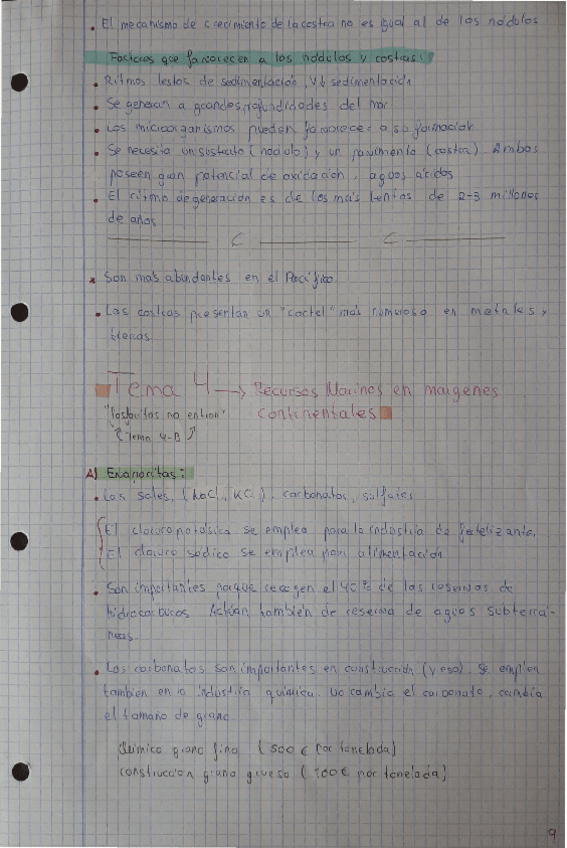 • El mecanismo de crecimiento de la costra no es igual al de los nódulos
Factores que favorecen a los nódulos y costras:
• Ritmos lentos de sedimentación, V↓ sedimentación
• Se generan a grandes profundidades del mar
• Los microorganismos pueden favorecer a su formación
• Se necesita un sustrato (nódulo) y un pavimento (costra). Ambos
poseen gran potencial de oxidación, aguas ácidas
• El ritmo de generación es de los más lentos de 2-3 millones
de años
* Son más abundantes en el Pacífico.
• Las costras presentan un "coctel" más numeroso en metales y
tierras
Tema 4 → Recursos Marinos en margenes
continentales
"fosforitas no entran"
(Tema 4-B)
A) Evaporitas:
• Las sales, (NaCl, KCl), carbonatos, sulfatos
El cloruro potásico se emplea para la industria de fertilizante.
El cloruro sódico se emplea para alimentación
• Son importantes porque recogen el 40% de las reservas de
hidrocarburos. Actúan también de reserva de aguas subterrá-
neas.
• Los carbonatos son importantes en construcción (yeso). Se emplea
también en la industria química. No cambia el carbonato, cambia
el tamaño de grano.
Químico grano fino (500 € por tonelada)
construcción grano grueso (100 € por tonelada)
9